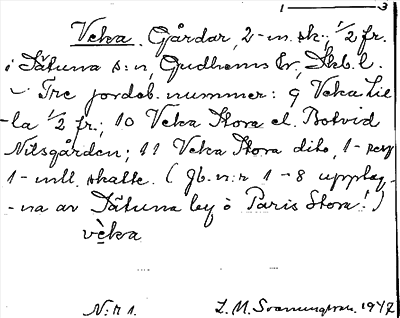 1 — 3
Veka. Gårdar, 2-m. sk., 1/2 fr.
i Sätuna s:n, Gudhems hr, Skb. l.
Tre jordeb. nummer: 9 Veka Lil-
la 1/2 fr.; 10 Veka Stora el. Botvid
Nilsgården; 11 Veka Stora dito, 1-
1-mtl. skatte. (Jb. n:r 1-8 upptag-
na av Sätuna by o Paris Stora!)
vèka
N:r 1. 1947